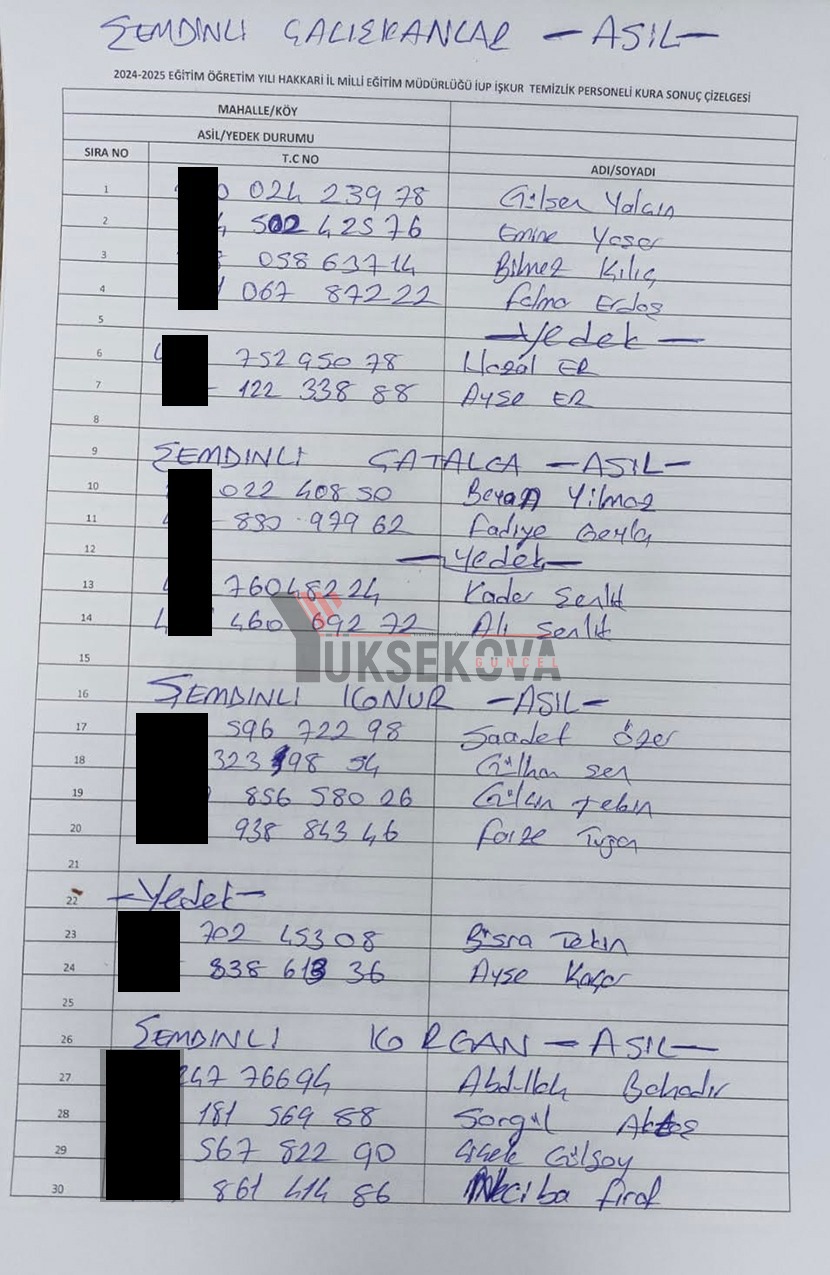 ŞEMDİNLİ ÇALIŞKANLAR - ASIL -
2024-2025 EĞİTİM ÖĞRETİM YILI HAKKARİ İL MİLLİ EĞİTİM MÜDÜRLÜĞÜ İUP İŞKUR TEMİZLİK PERSONELİ KURA SONUÇ ÇİZELGESİ
MAHALLE/KÖY
ASİL/YEDEK DURUMU
SIRA NO T.C NO ADI/SOYADI
1 0 024 239 78 Gülsen Yalçın
2 502 425 76 Emine Yaşar
3 058 637 14 Bilmez Kılıç
4 067 87222 Fatma Erdaş
5 - Yedek -
6 752 950 78 Hazal ER
7 122 338 88 Ayşe ER
8
9 ŞEMDİNLİ ÇATALCA - ASIL -
10 022 408 50 Beyan Yılmaz
11 880 979 62 Fadiye
12 - Yedek -
13 760 482 24 Kader Şenlit
14 460 692 72 Ali Şenlit
15
YÜKSEKOVA
GÜNCEL
16 ŞEMDİNLİ KONUR - ASIL -
17 596 722 98 Saadet Özer
18 323 198 54 Gülhan Şen
19 856 580 26 Gülan Tekin
20 938 843 46 Faize
21
22 - Yedek -
23 702 453 08 Büşra Tekin
24 838 613 36 Ayşe Kaçar
25
26 ŞEMDİNLİ KORGAN - ASIL -
27 247 76694 Abdullah Bahadır
28 181 569 88 Sorgül Aktaş
29 567 822 90 Çiçek Gülsoy
30 861 414 86 Neciba Fırat